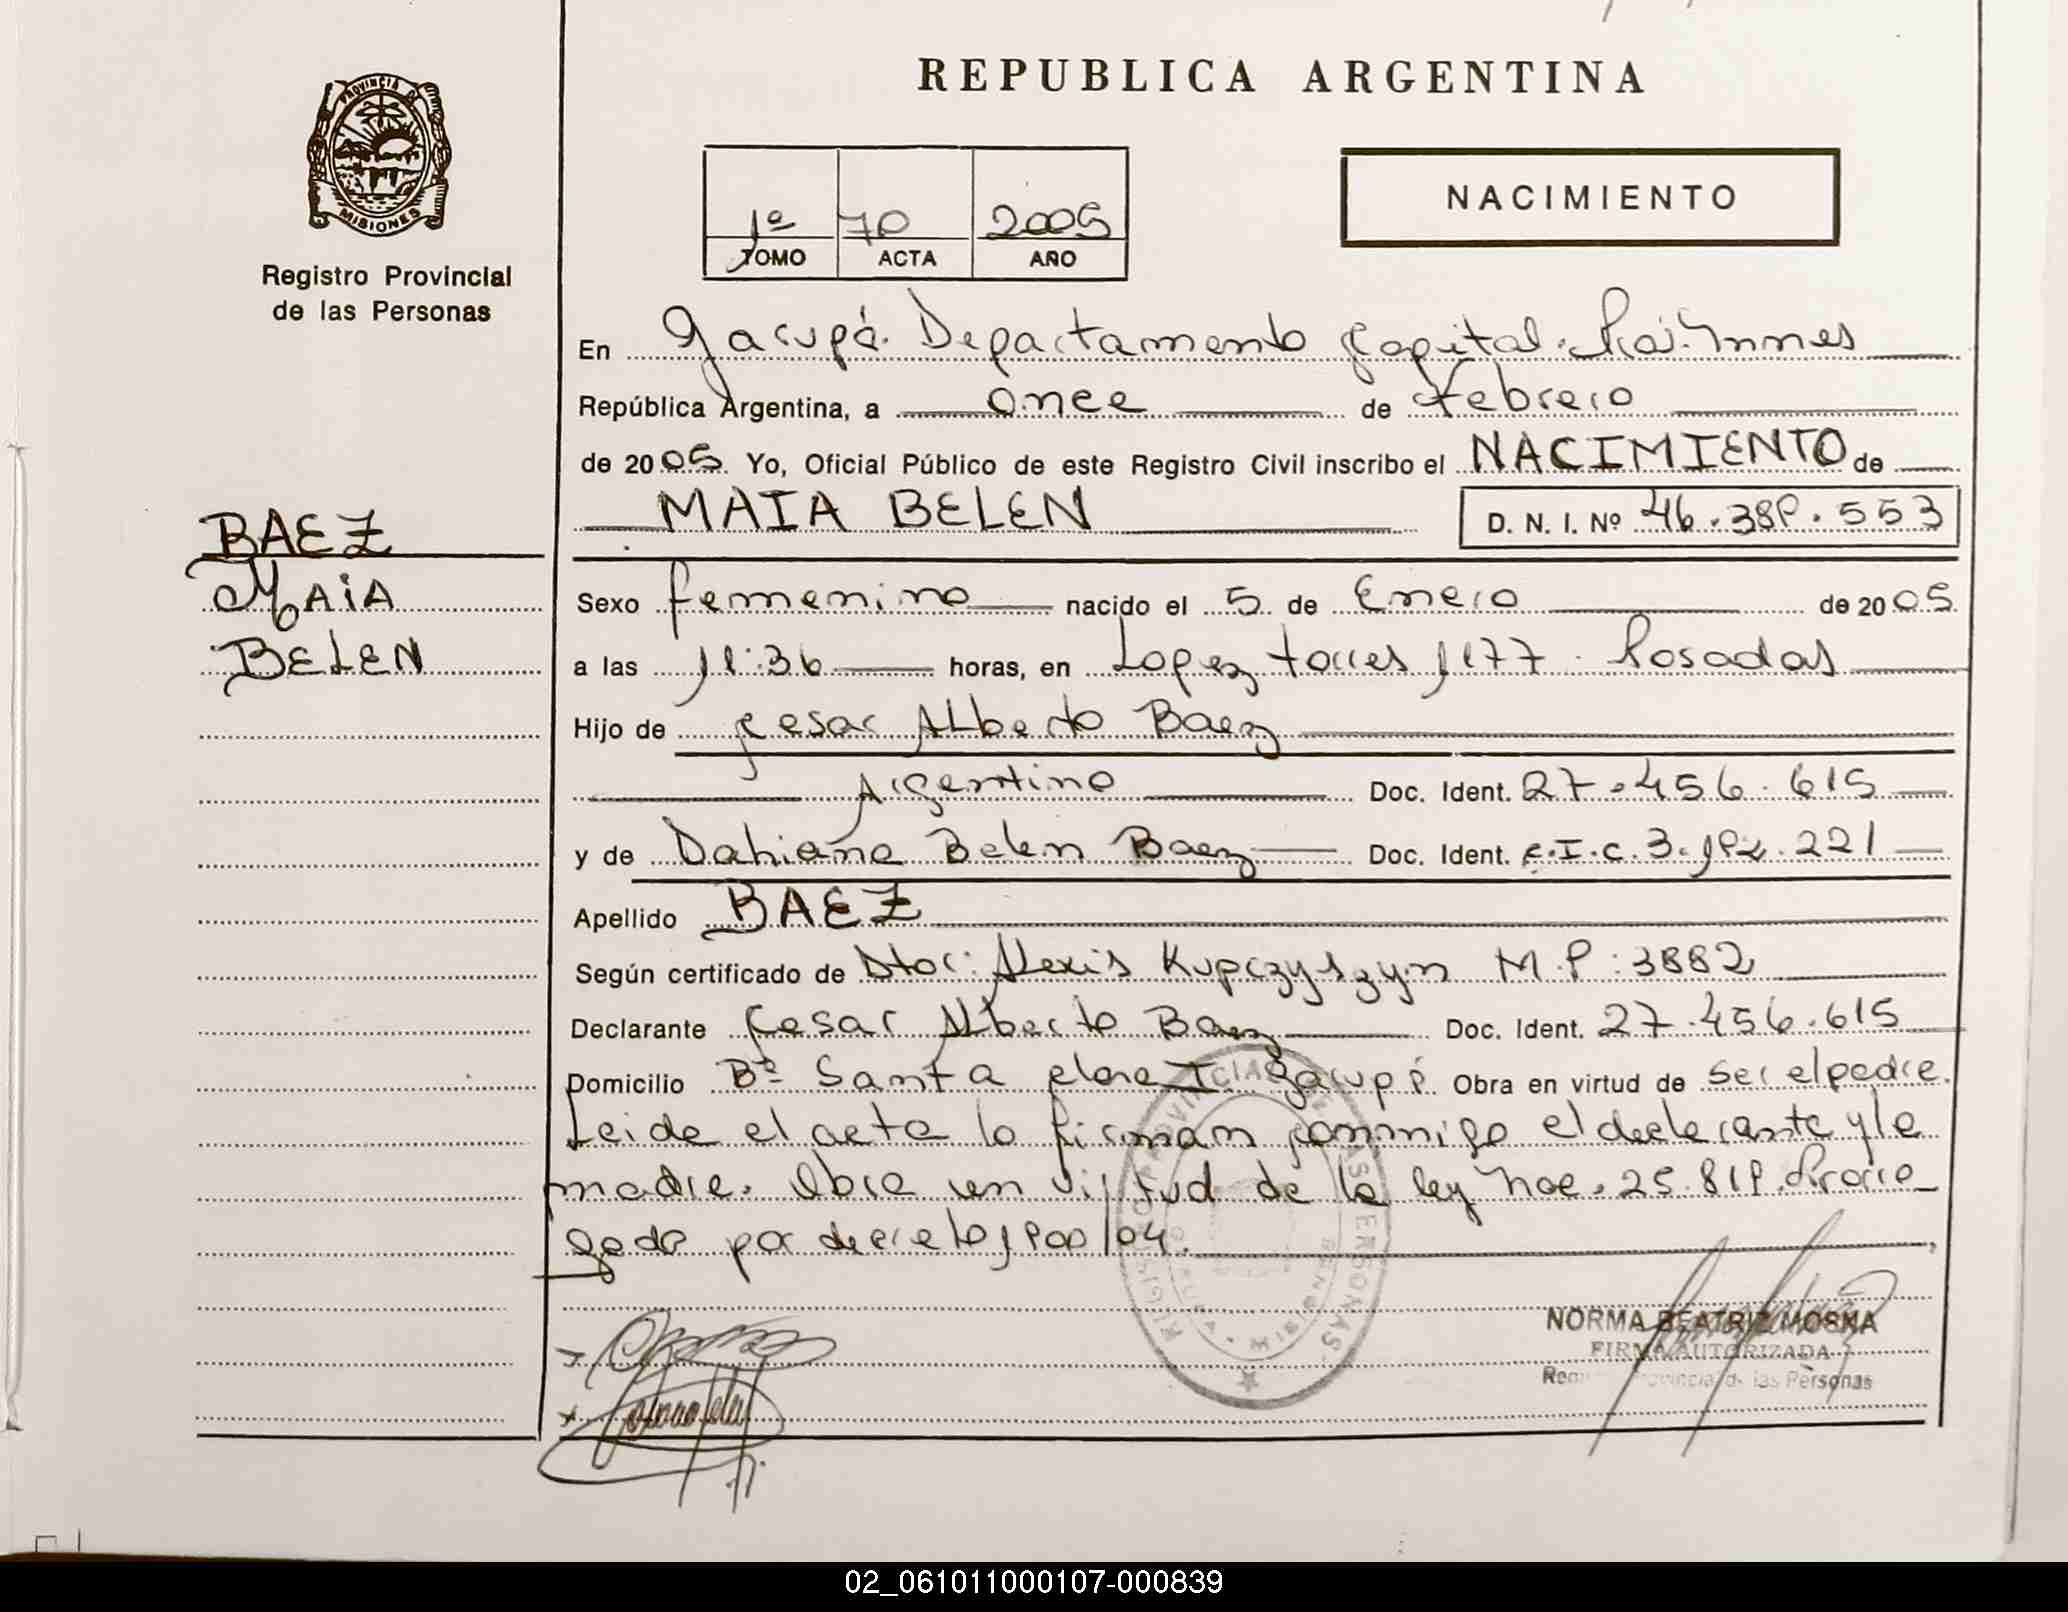 REPUBLICA ARGENTINA
PROVINCIA DE
MISIONES
Registro Provincial
de las Personas
1º 70 2005
TOMO ACTA AÑO
NACIMIENTO
En Garupá. Departamento Capital.
República Argentina, a once de Febrero
de 2005. Yo, Oficial Público de este Registro Civil inscribo el NACIMIENTO de
MAIA BELEN D. N. I. Nº 46.389.553
BAEZ
MAIA
BELEN
Sexo femenino nacido el 5 de Enero de 2005
a las 11:36 horas, en Lopez torres 1177. Posadas
Hijo de Cesar ALberto Baez
Argentino Doc. Ident. 27.456.615
y de Dahiana Belen Baez Doc. Ident. C.I.C. 3.192.221
Apellido BAEZ
Según certificado de Dtor: Alexis Kupczyszyn M.P: 3882
Declarante Cesar Alberto Baez Doc. Ident. 27.456.615
Domicilio Bº Santa Clara I Garupá Obra en virtud de ser el padre.
Leida el acta la firman conmigo el declarante y la
madre. Obra en virtud de la ley Nac. 25.819. Prorro_
gada por decreto 1900/04.
NORMA BEATRIZ
FIRMA AUTORIZADA
Registro Provincial de las Personas
02_061011000107-000839